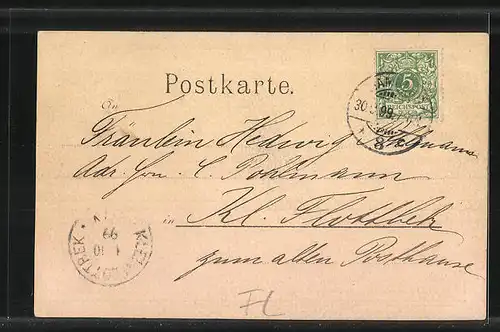 Postkarte.
5
REICHSPOST
30
99
8
An
Fräulein Hedwig
Adr. Hrn. C. Pohlmann
in
Kl. Flottbek
zum alten Posthause
KLEIN FLOTTBEK
1 10
99
FL